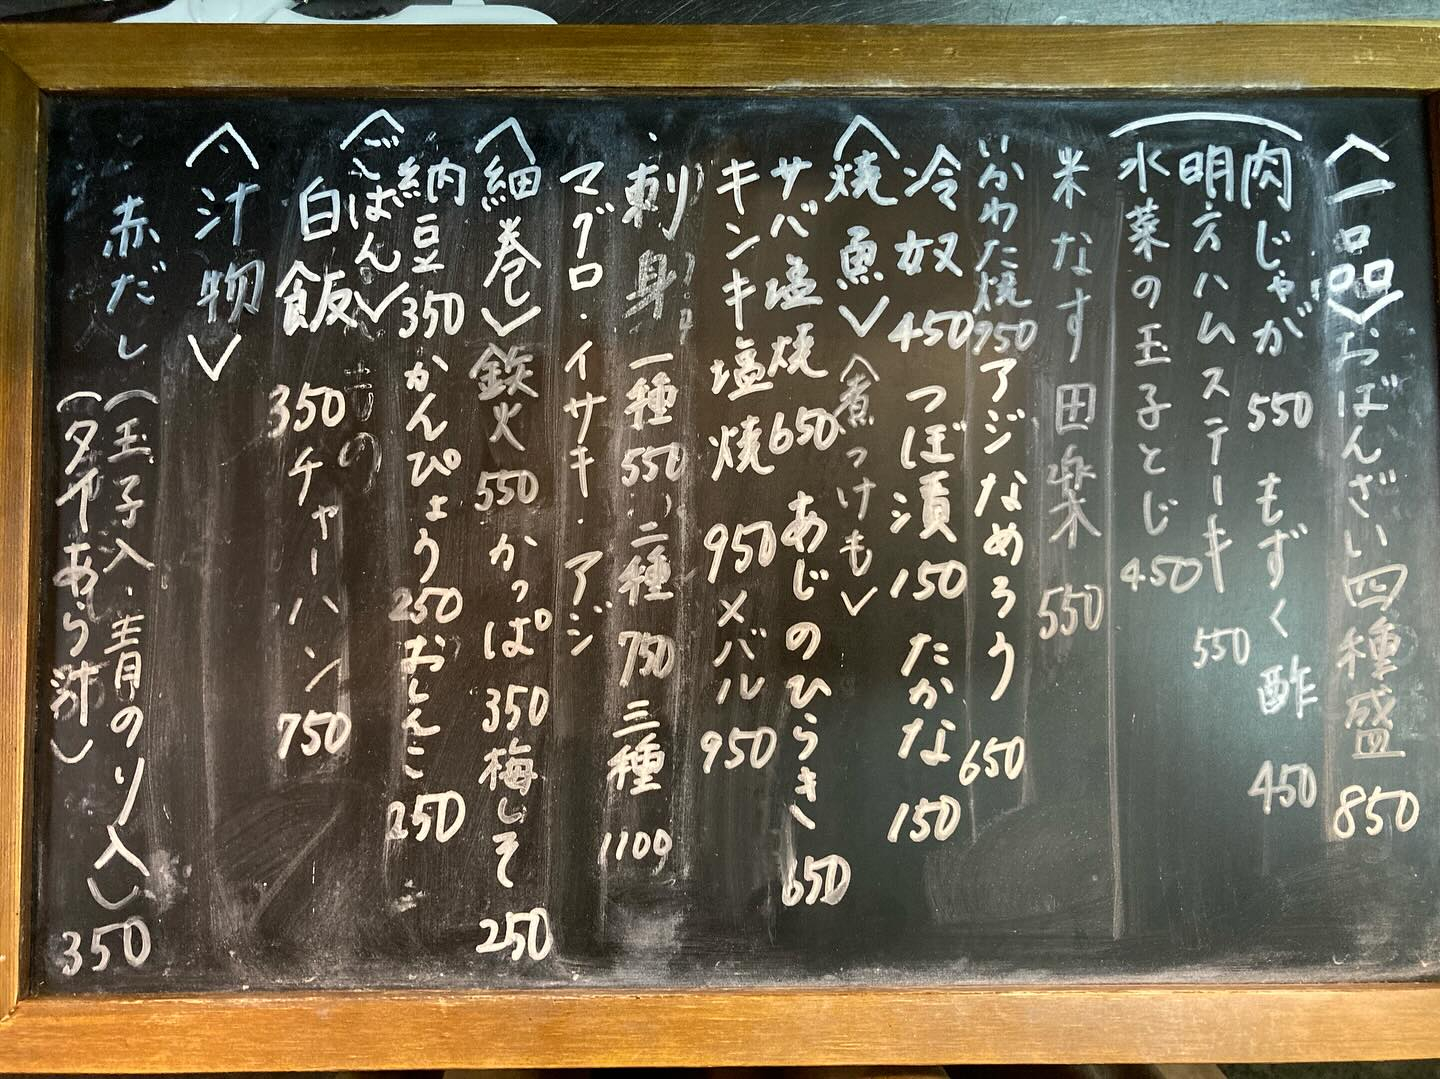 〈一品〉おばんざい四種盛 850
肉じゃが 550 もずく酢 450
明方ハムステーキ 550
水菜の玉子とじ 450
米なす田楽 550
いかわた焼 950 アジなめろう 650
冷奴 450 つぼ漬 150 たかな 150
〈焼魚〉〈煮つけも〉
サバ塩焼 650 あじのひらき 650
キンキ塩焼 950 メバル 950
刺身 一種 550 二種 750 三種 1100
マグロ・イサキ・アジ
〈細巻〉鉄火 550 かっぱ 350 梅しそ 250
納豆 350 かんぴょう 250 おしんこ 250
〈ごはん〉
白飯 350 チャーハン 750
〈汁物〉
赤だし (玉子入・青のり入)
(タイあら汁) 350